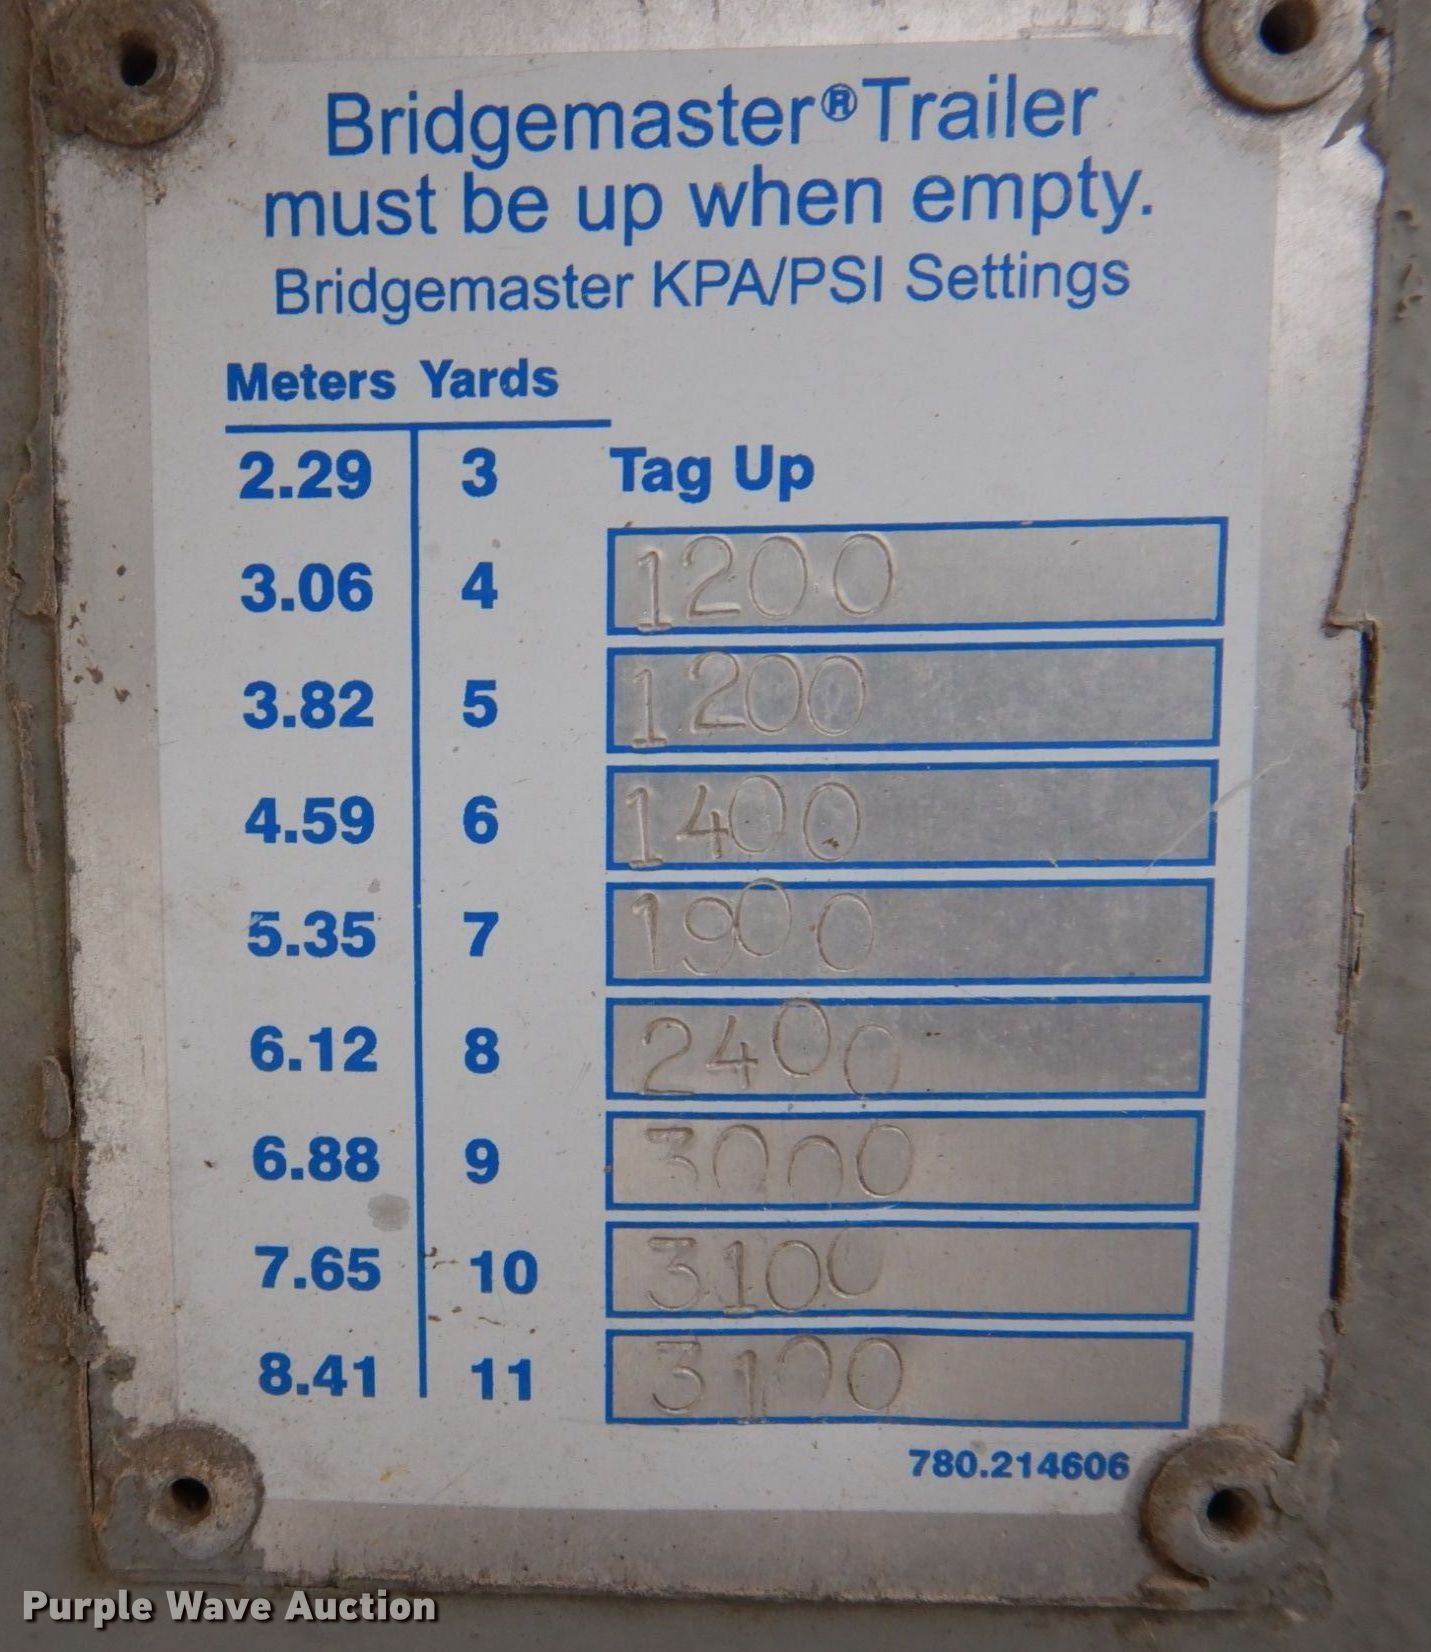 Bridgemaster® Trailer
must be up when empty.
Bridgemaster KPA/PSI Settings
Meters Yards
2.29 3 Tag Up
3.06 4 1200
3.82 5 1200
4.59 6 1400
5.35 7 1900
6.12 8 2400
6.88 9 3000
7.65 10 3100
8.41 11 3100
780.214606
Purple Wave Auction